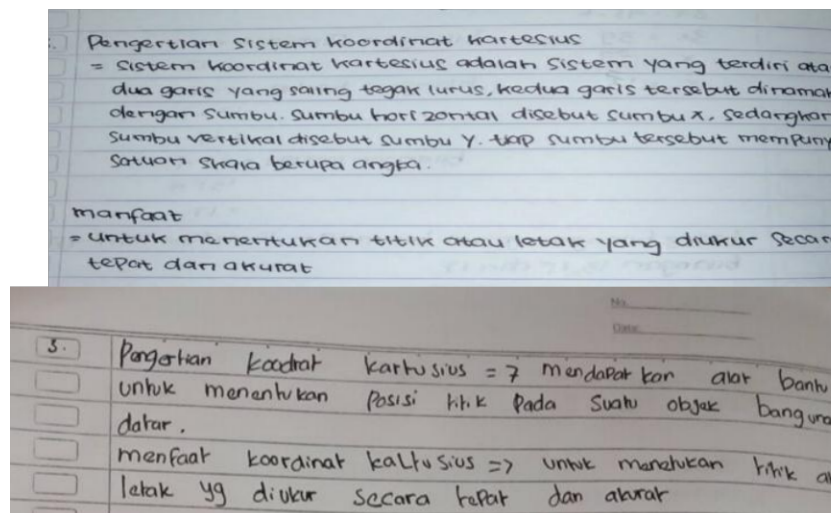 Pengertian sistem koordinat kartesius
= sistem koordinat kartesius adalah sistem yang terdiri ata
dua garis yang saling tegak lurus, kedua garis tersebut dinamak
dengan sumbu. sumbu horizontal disebut sumbu x, sedangkan
sumbu vertikal disebut sumbu y. tiap sumbu tersebut mempuny
satuan skala berupa angka.
manfaat
= untuk menentukan titik atau letak yang diukur secar
tepat dan akurat
No.
Date:
3. Pengertian koodrat kartusius => mendapatkan alat bantu
untuk menentukan posisi titik pada suatu objek banguna
datar.
menfaat koordinat kaltusius => untuk menetukan titik a
letak yg diukur secara tepat dan akurat